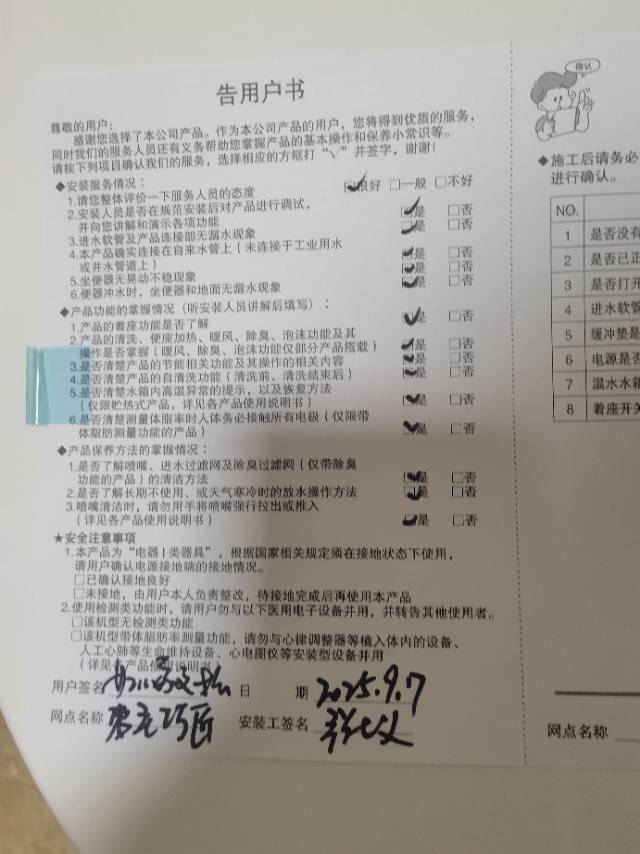 告用户书
尊敬的用户：
感谢您选择了本公司产品。作为本公司产品的用户，您将得到优质的服务，
同时我们的服务人员还有义务帮助您掌握产品的基本操作和保养小常识等。
请按下列项目确认我们的服务，选择相应的方框打“√”并签字，谢谢！
◆安装服务情况：
1.请您整体评价一下服务人员的态度 ☑很好 □一般 □不好
2.安装人员是否在规范安装后对产品进行调试，
并向您讲解和演示各项功能 ☑是 □否
3.进水软管及产品连接部无漏水现象 ☑是 □否
4.本产品确实连接在自来水管上（未连接于工业用水
或井水管道上） ☑是 □否
5.坐便器无晃动不稳现象 ☑是 □否
6.便器冲水时，坐便器和地面无漏水现象 ☑是 □否
◆产品功能的掌握情况（听安装人员讲解后填写）：
1.产品的着座功能是否了解 ☑是 □否
2.产品的清洗、便座加热、暖风、除臭、泡沫功能及其
操作是否掌握（暖风、除臭、泡沫功能仅部分产品搭载） ☑是 □否
3.是否清楚产品的节能相关功能及其操作的相关内容 ☑是 □否
4.是否清楚产品的自清洗功能（清洗前、清洗结束后） ☑是 □否
5.是否清楚水箱内高温异常的提示，以及恢复方法
（仅限贮热式产品，详见各产品使用说明书） ☑是 □否
6.是否清楚测量体脂率时人体务必接触所有电极（仅限带
体脂肪测量功能的产品） ☑是 □否
◆产品保养方法的掌握情况：
1.是否了解喷嘴、进水过滤网及除臭过滤网（仅带除臭
功能的产品）的清洁方法 ☑是 □否
2.是否了解长期不使用、或天气寒冷时的放水操作方法 ☑是 □否
3.喷嘴清洁时，请勿用手将喷嘴强行拉出或推入
（详见各产品使用说明书） ☑是 □否
★安全注意事项
1.本产品为“电器Ⅰ类器具”，根据国家相关规定须在接地状态下使用，
请用户确认电源接地端的接地情况。
□已确认接地良好
□未接地，由用户本人负责整改，待接地完成后再使用本产品
2.使用检测类功能时，请用户勿与以下医用电子设备并用，并转告其他使用者。
□该机型无检测类功能
□该机型带体脂肪率测量功能，请勿与心律调整器等植入体内的设备、
人工心肺等生命维持设备、心电图仪等安装型设备并用
（详见各产品使用说明书）
用户签名 日 期 2025.9.7
网点名称 安装工签名
确认
◆施工后请务必
进行确认。
NO.
1 是否没有
2 是否已正
3 是否打开
4 进水软管
5 缓冲垫是
6 电源是否
7 温水水箱
8 着座开关
网点名称